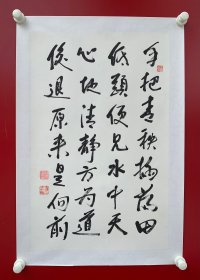 手把青秧插滿田
低頭便見水中天
心地清静方为道
後退原来是向前